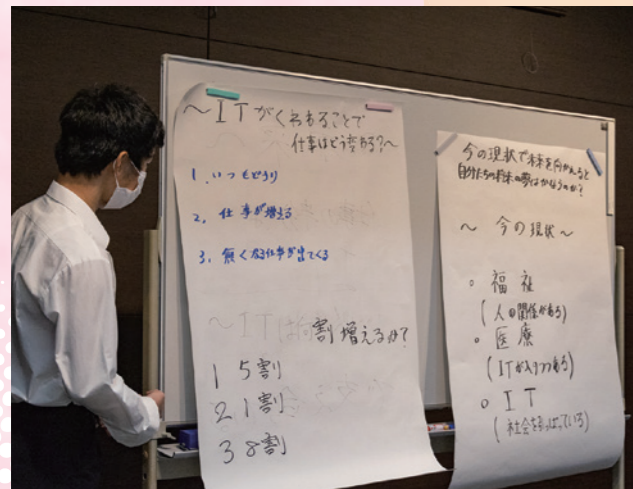 ～ITがくわわることで
仕事はどう変わる?～
1. いつもどうり
2. 仕事が増える
3. 無くなる仕事が出てくる
割増えるか?
1 5割
2 1割
3 8割
今の現状で未来を向かえると
自分たちの将来の夢はかなうのか?
～ 今の現状 ～
○ 福祉
(人の関係がある)
○ 医療
(ITが入りつつある)
○ IT
(社会を引っぱっている)